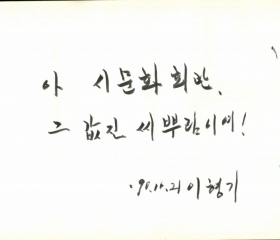 아 시문화회관,
그 값진 씨뿌림이여!
'90.11.21 이형기